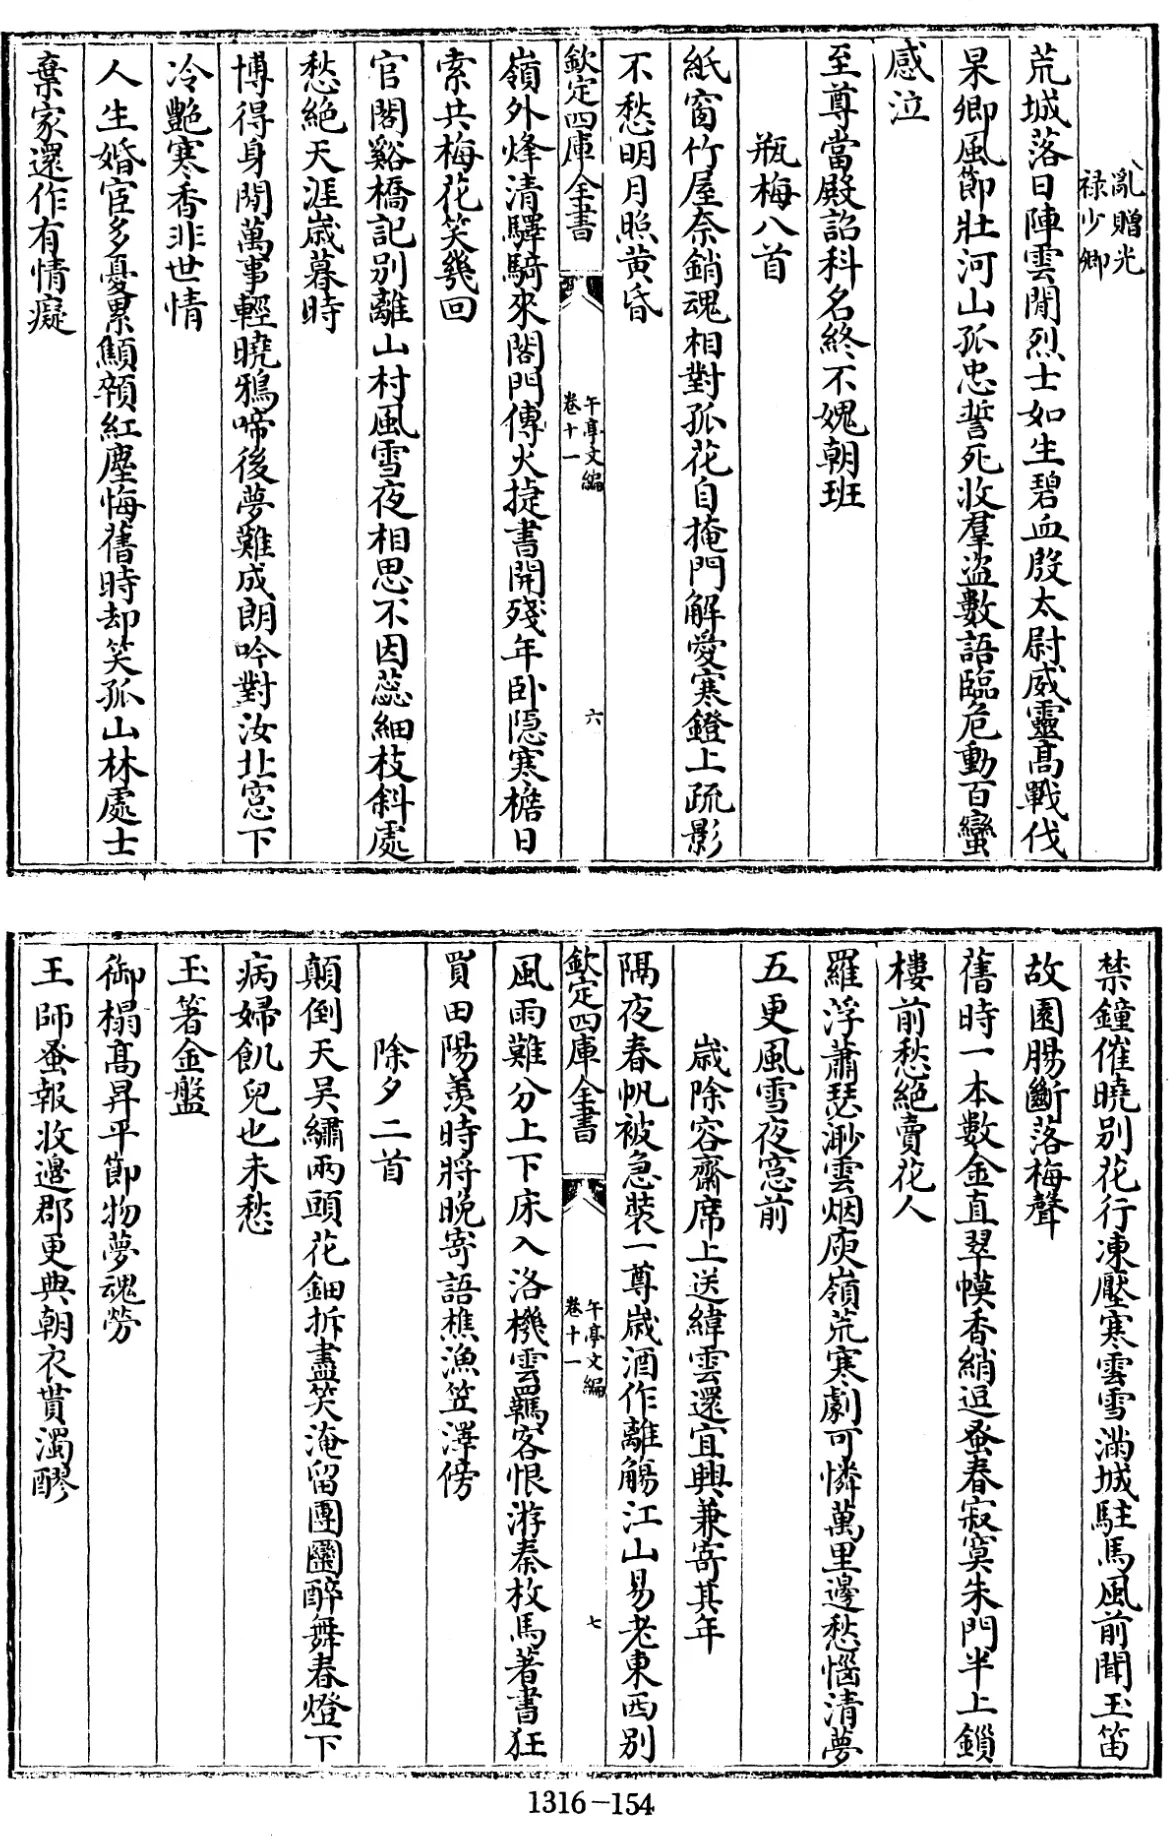 亂贈光
禄少卿
荒城落日陣雲閒烈士如生碧血殷太尉威靈髙戰伐
杲卿風節壯河山孤忠誓死收羣盗數語臨危動百蠻
感泣
至尊當殿詔科名終不媿朝班
瓶梅八首
紙窗竹屋奈銷魂相對孤花自掩門解愛寒鐙上疏影
不愁明月照黄昏
欽定四庫全書
午亭文編
卷十一
六
嶺外烽清驛騎來閣門傳火捷書開殘年卧隠寒檐日
索共梅花笑幾回
官閣谿橋記别離山村風雪夜相思不因蕊細枝斜處
愁絶天涯歳暮時
博得身閒萬事輕曉鴉啼後夢難成朗吟對汝北窓下
冷艶寒香非世情
人生婚宦多憂累顛顇紅塵悔舊時却笑孤山林處士
棄家還作有情癡
禁鐘催曉别花行凍壓寒雲雪滿城駐馬風前聞玉笛
故園腸斷落梅聲
舊時一本數金直翠幙香綃逗蚤春寂寞朱門半上鎖
樓前愁絶賣花人
羅浮蕭瑟渺雲烟庾嶺荒寒劇可憐萬里邊愁惱清夢
五更風雪夜窓前
歳除容齋席上送緯雲還宜興兼寄其年
隔夜春帆被急裝一尊歳酒作離觴江山易老東西别
欽定四庫全書
午亭文編
卷十一
七
風雨難分上下床入洛機雲羈客恨游秦枚馬著書狂
買田陽羨時將晚寄語樵漁笠澤傍
除夕二首
顛倒天吴繡兩頭花鈿拆盡笑淹留團圞醉舞春燈下
病婦飢兒也未愁
玉箸金盤
御榻髙昇平節物夢魂勞
王師蚤報收邊郡更典朝衣貰濁醪
1316-154